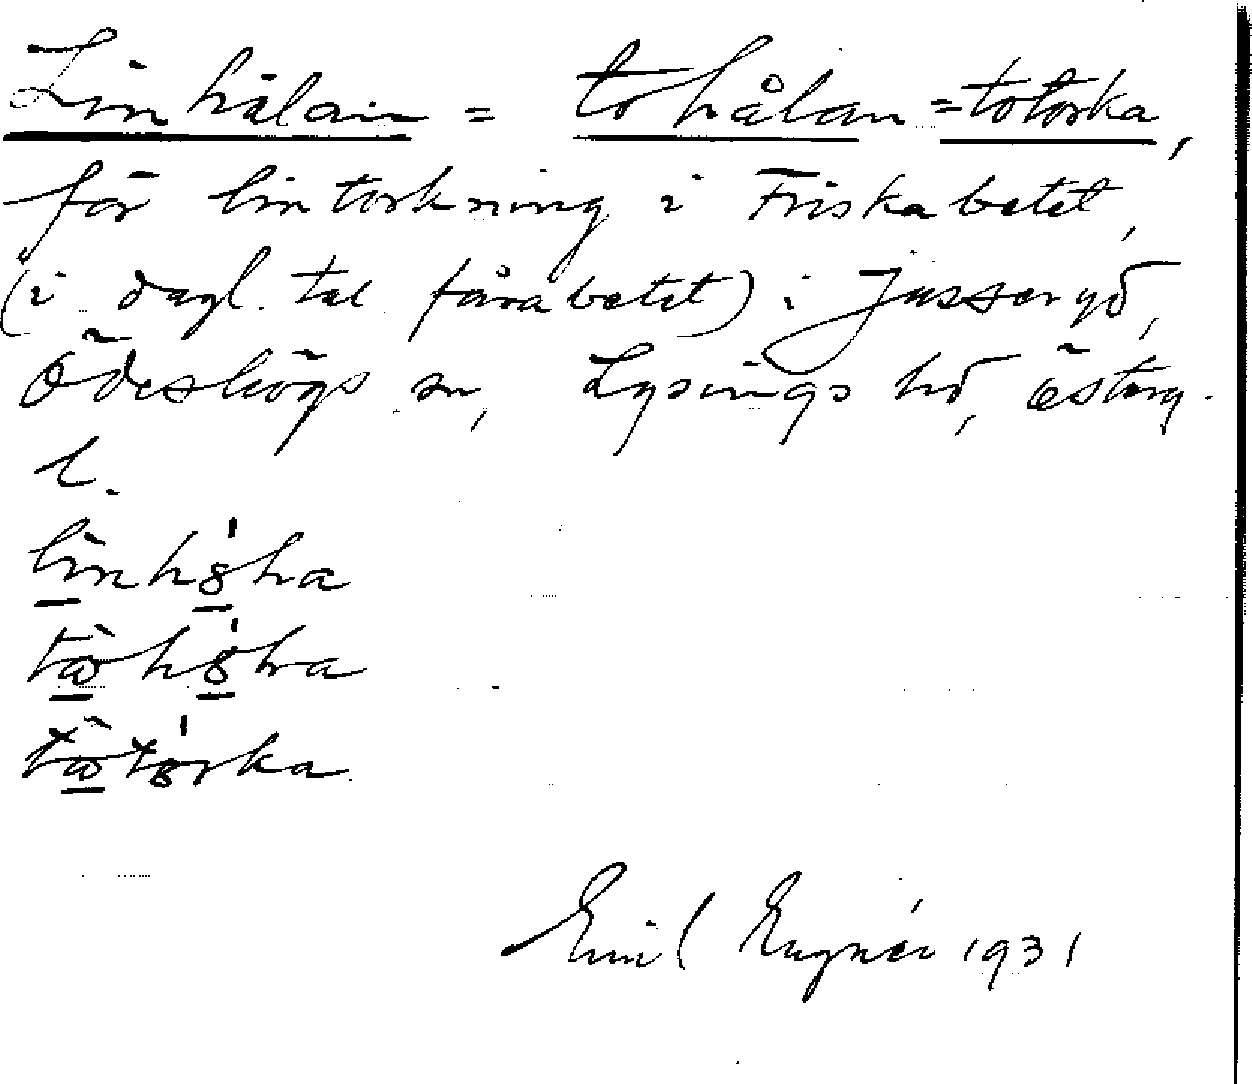 Linhålan = tohålan = totorka,
för lintorkning i Friskabetet,
(i dagl. tal fårabetet) i Jusseryd,
Ödeshögs sn, Lysings hd, Österg.
l.
Emil Engnér 1931